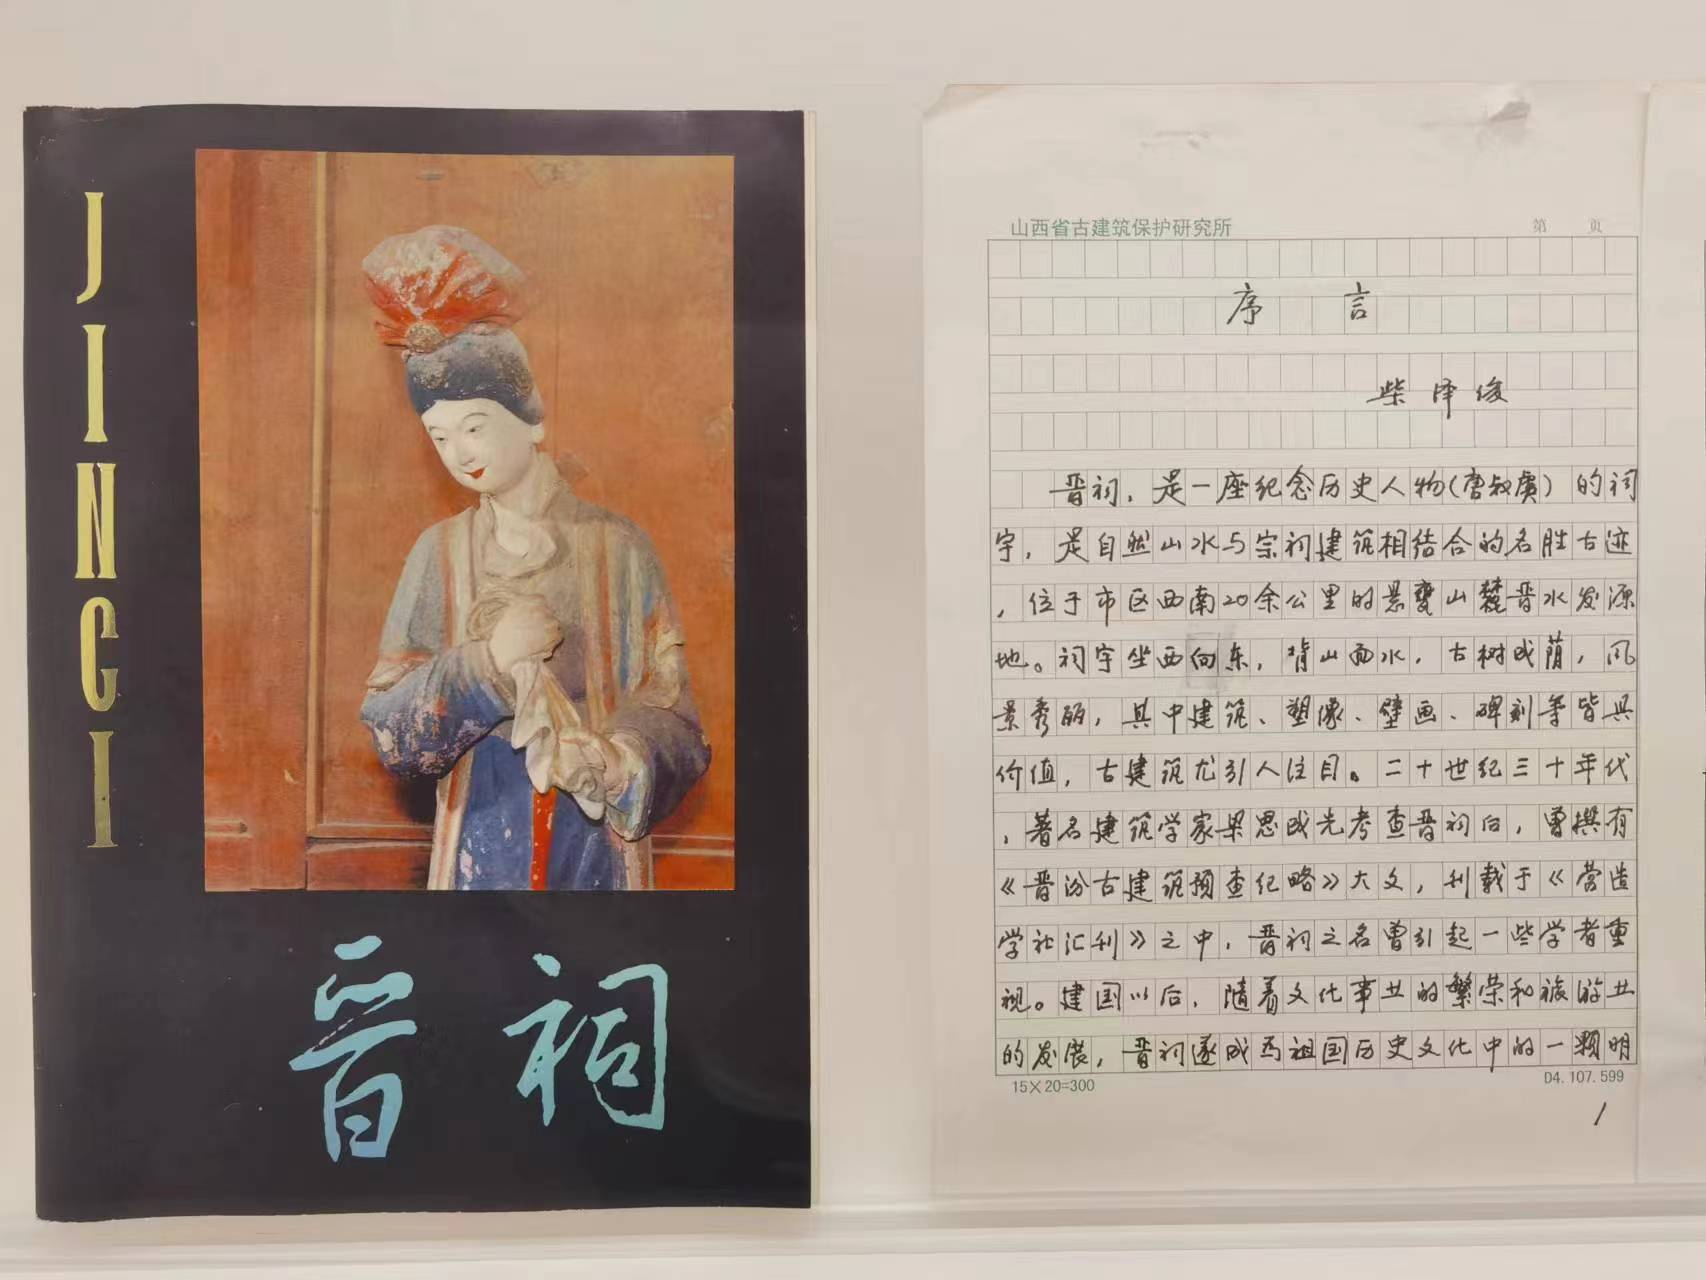 JINCI
晋祠
山西省古建筑保护研究所
第 页
序言
柴泽俊
晋祠，是一座纪念历史人物(唐叔虞)的祠
宇，是自然山水与宗祠建筑相结合的名胜古迹
，位于市区西南20余公里的悬瓮山麓晋水发源
地。祠宇坐西向东，背山面水，古树成荫，风
景秀丽，其中建筑、塑像、壁画、碑刻等皆具
价值，古建筑尤引人注目。二十世纪三十年代
，著名建筑学家梁思成先考查晋祠后，曾撰有
《晋汾古建筑预查纪略》大文，刊载于《营造
学社汇刊》之中，晋祠之名曾引起一些学者重
视。建国以后，随着文化事业的繁荣和旅游业
的发展，晋祠遂成为祖国历史文化中的一颗明
15×20=300
D4.107.599
1